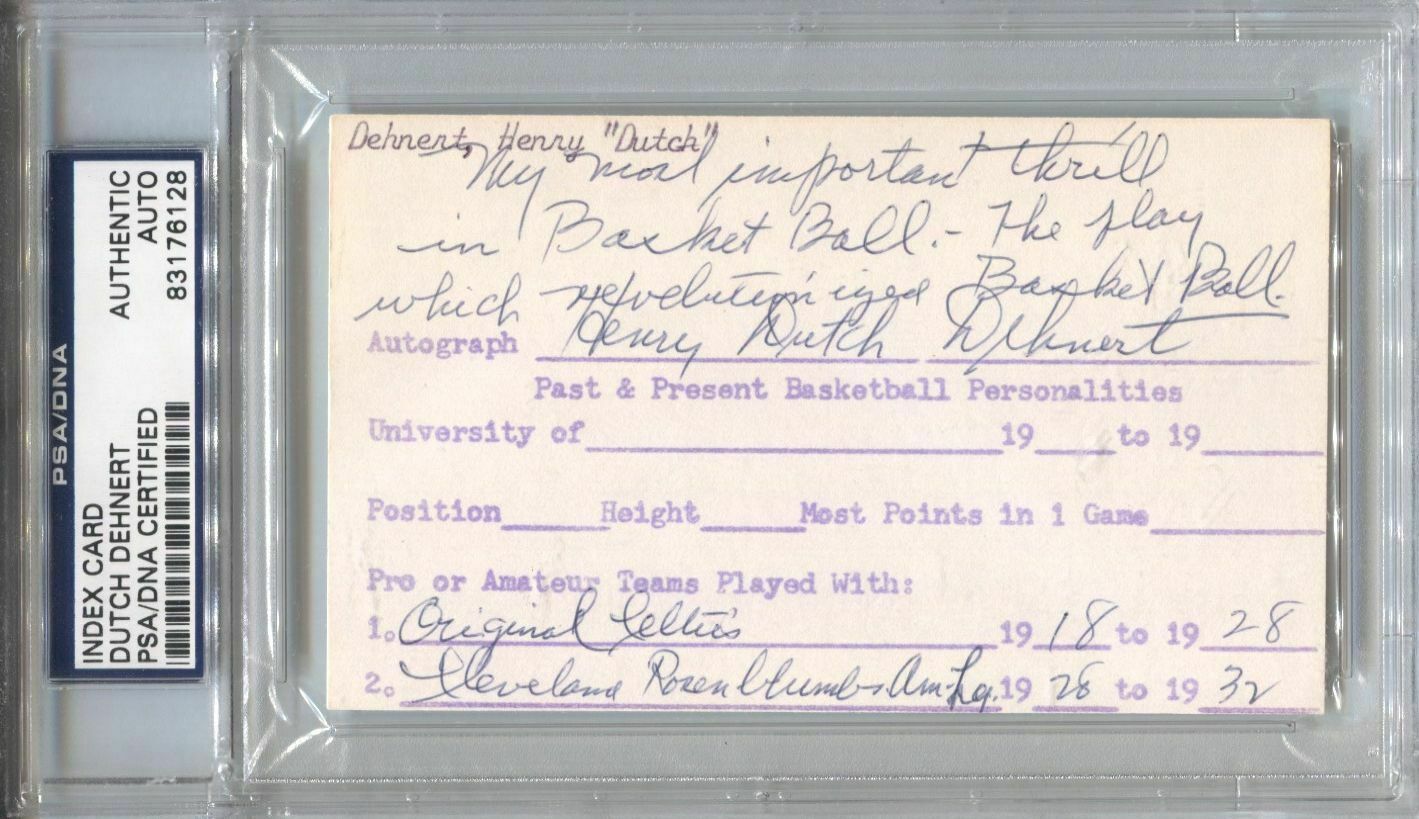 PSA/DNA
INDEX CARD AUTHENTIC
DUTCH DEHNERT AUTO
PSA/DNA CERTIFIED 83176128
Dehnert, Henry "Dutch"
My most important thrill
in Basket Ball.- The play
which revolutionized Basket Ball.
Autograph Henry Dutch Dehnert
Past & Present Basketball Personalities
University of 19 to 19
Position Height Most Points in 1 Game
Pro or Amateur Teams Played With:
1. Original Celtics 19 18 to 19 28
2. Cleveland Rosenblumbs Am. Lg. 19 28 to 19 32